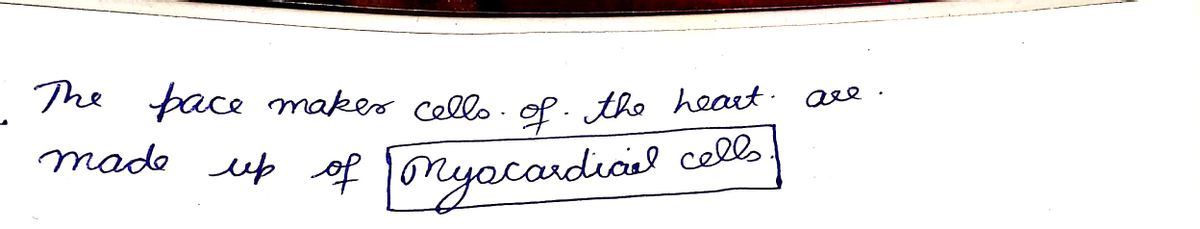 The pace maker cells. of. the heart. are.
made up of Myocardial cells.